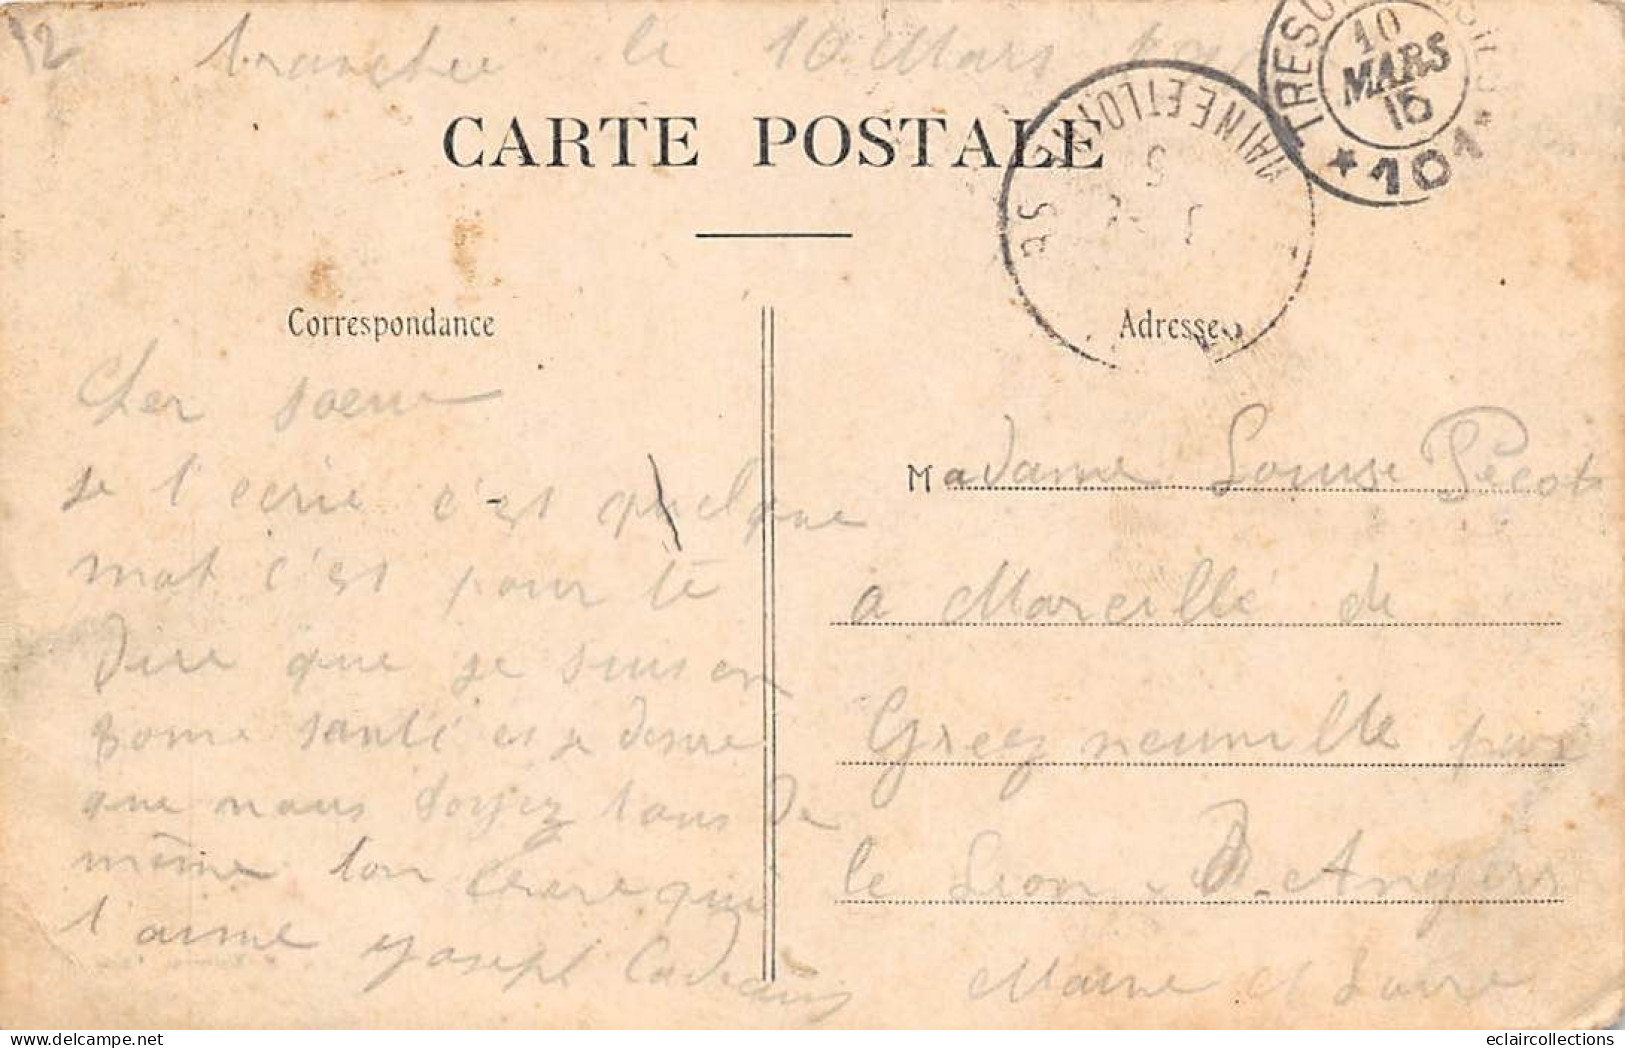 12
le 10 Mars
TRESOR
10
MARS
15
*101*
MAINE ET LOIRE
CARTE POSTALE
Correspondance
Adresse
Cher soeur
je t'ecrie c'est quelque
mot c'est pour te
dire que je suis en
bonne santé et je desire
que nous soyez tous de
même ton frere qui
t'aime Joseph
Madame Louise Pécot
a Mareillé de
Greez neuville par
le Lion D. Angers
Maine et Loire
eclaircollections